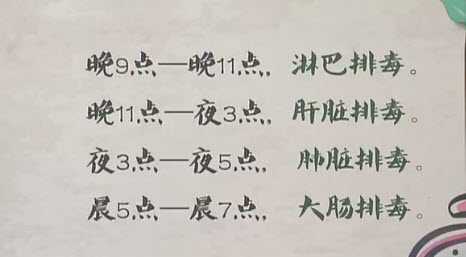 晚9点—晚11点，淋巴排毒。
晚11点—夜3点，肝脏排毒。
夜3点—夜5点，肺脏排毒。
晨5点—晨7点，大肠排毒。